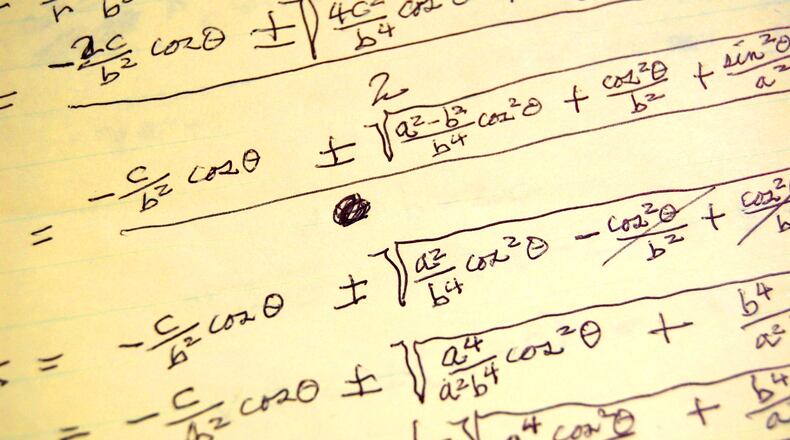 b²
= -2c/b² cos θ ± √4c²/b⁴ cos
2
-c/b² cos θ ± √a²-b²/b⁴ cos²θ + cos²θ/b² + sin²θ/a²
=
= -c/b² cos θ ± √a²/b⁴ cos²θ - cos²θ/b² + cos²θ/b
= -c/b² cos θ ± √a⁴/a²b⁴ cos²θ + b⁴/a²
a⁴ cos²θ + b⁴